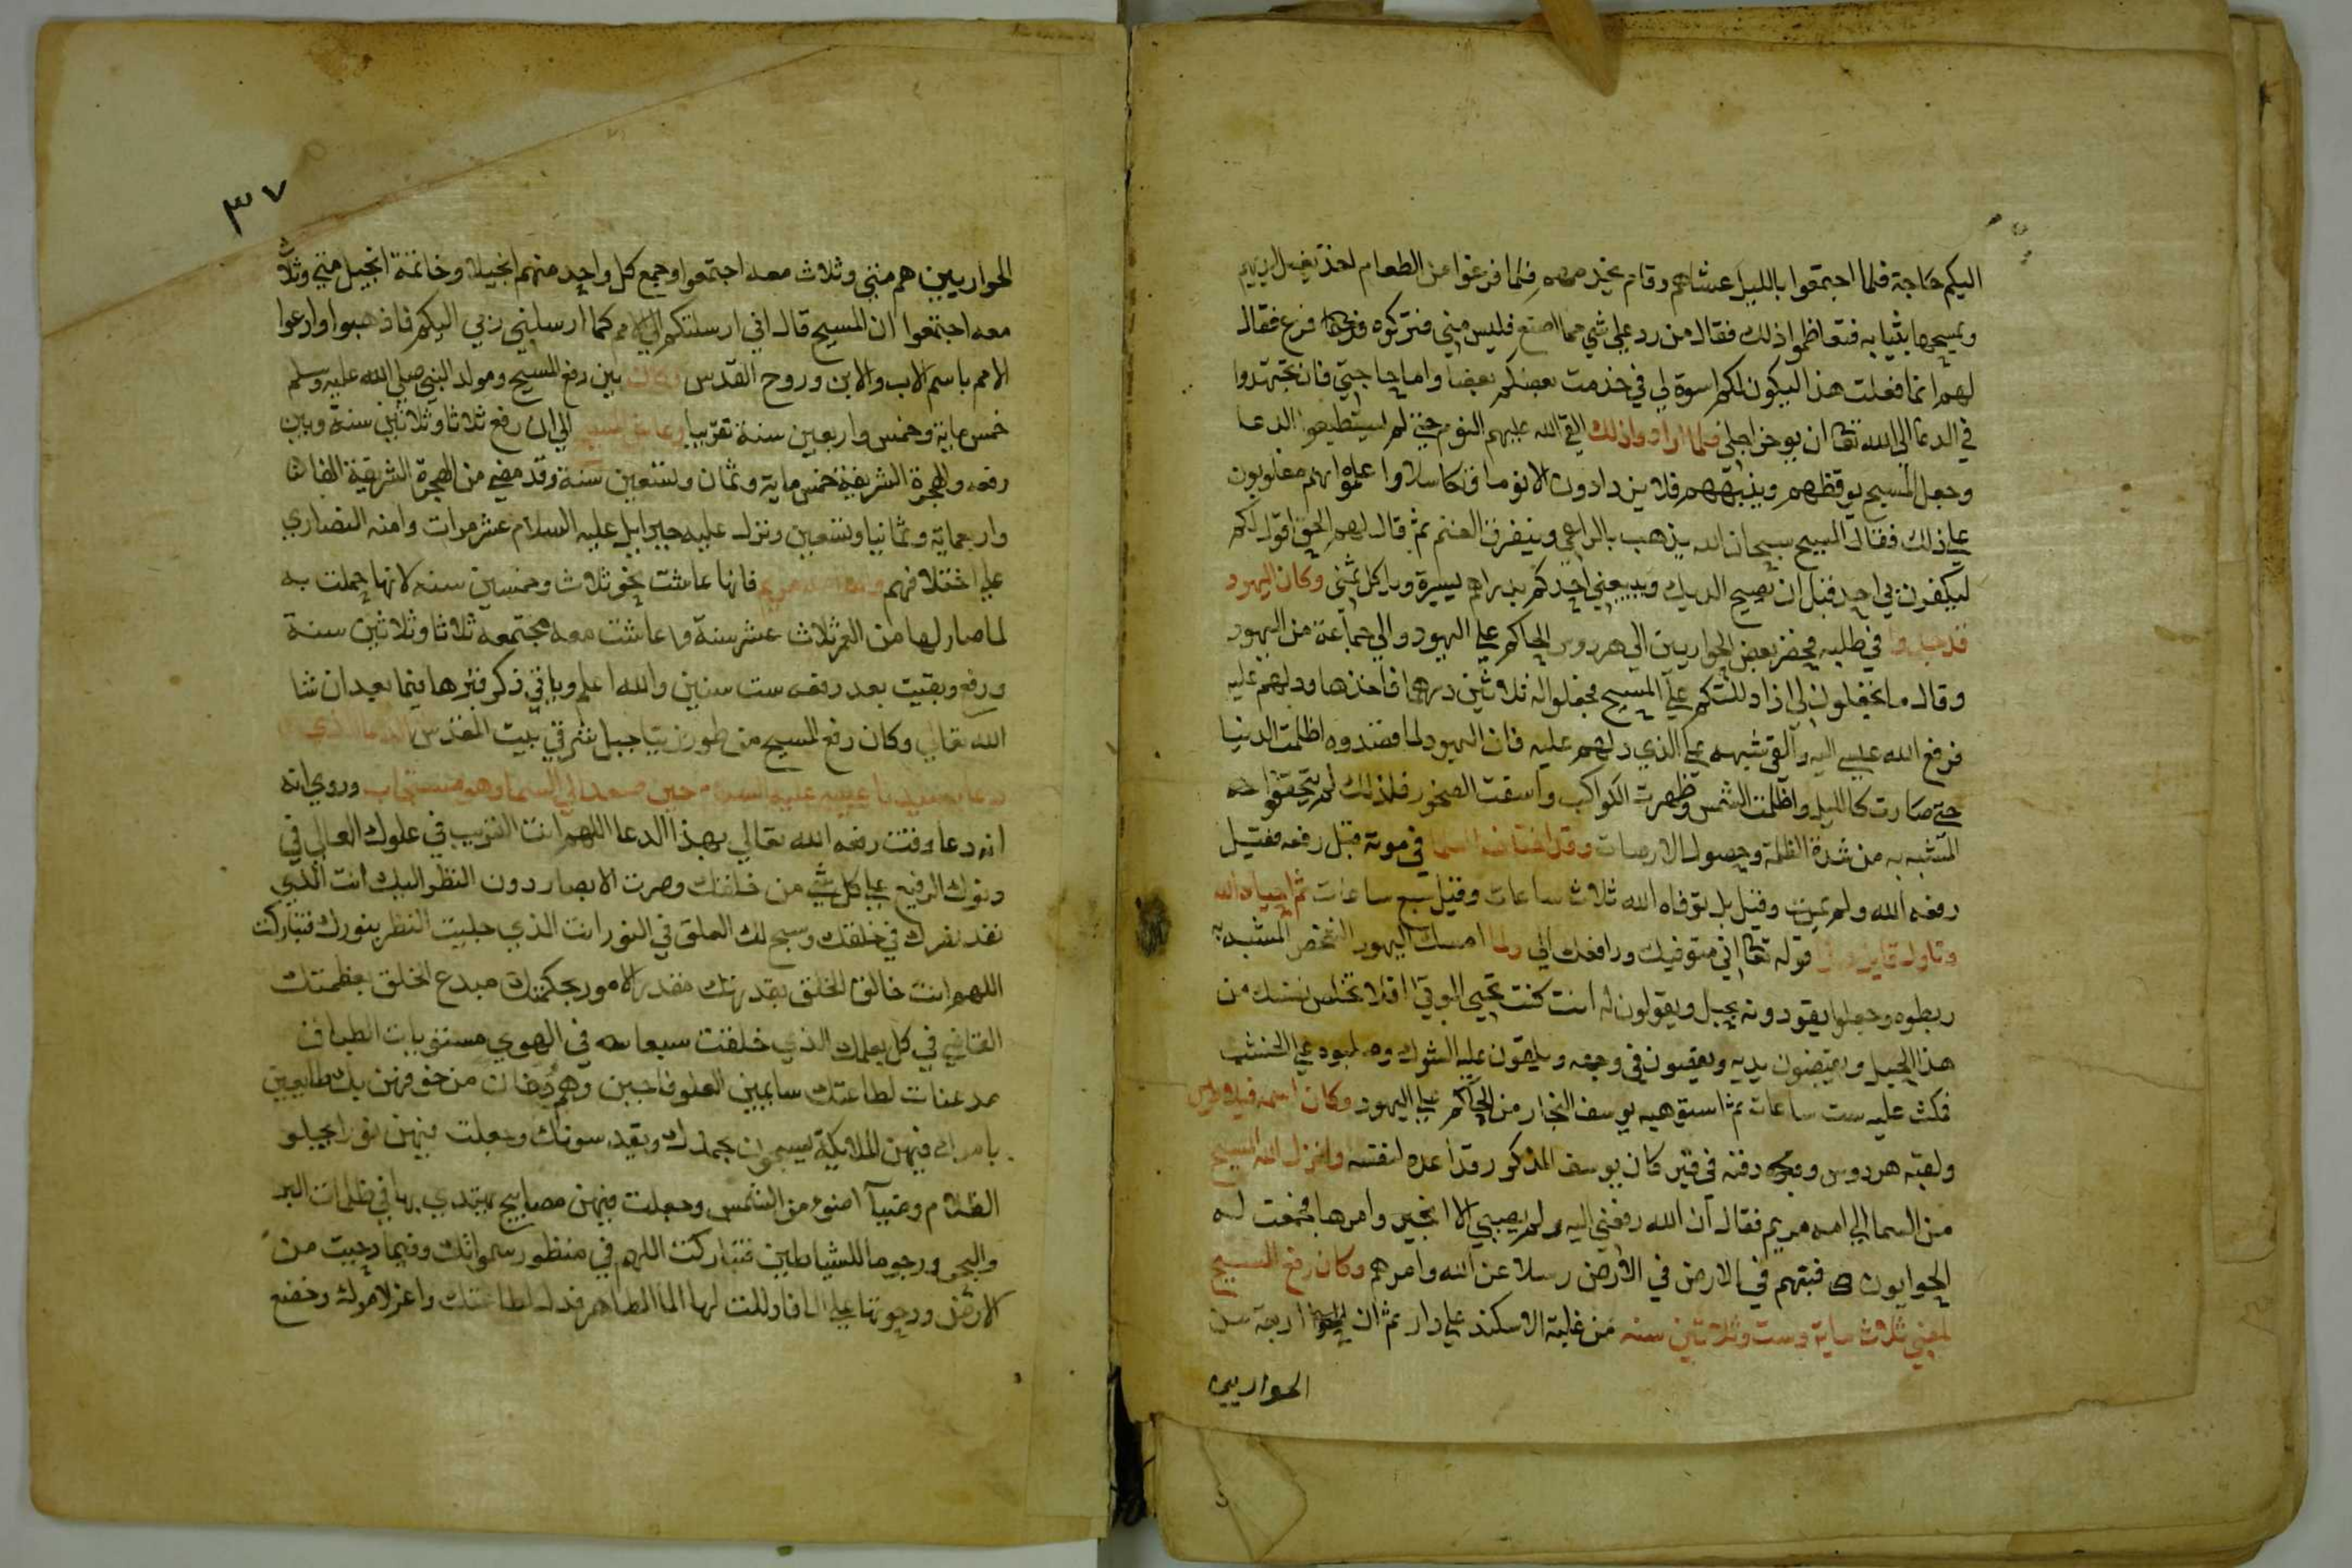 اليكم حاجة فلما اجتمعوا بالليل عشاهم وقام يخدمهم فلما فرغوا من الطعام اخذ يغسل ايديهم
ويمسحها بثيابه فتعاظموا ذلك فقال من رد علي شي مما اصنع فليس مني فتركوه حتي فرغ فقال
لهم انما فعلت هذا ليكون لكم اسوة لي في خدمت بعضكم بعضا واما حاجتي فان تجتهدوا
في الدعا الي الله تعا ان يوخر اجلي فلما ارادوا ذلك القي الله عليهم النوم حتي لم يستطيعوا الدعا
وجعل المسيح يوقظهم وينبههم فلا يزدادون الا نوما وتكاسلا واعلموا انهم مغلوبون
علي ذلك فقال المسيح سبحان الله يذهب بالراعي ويتفرق الغنم ثم قال لهم الحق اقول لكم
ليكفرن بي احدكم قبل ان يصيح الديك ويبيعني احدكم بدراهم يسيرة وياكل ثمني وكان اليهود
قد جدوا في طلبه فحضر بعض الحواريين الي هردوس الحاكم علي اليهود والي جماعة من اليهود
وقال ما تجعلون لي اذا دللتكم علي المسيح فجعلوا له ثلاثين درهما فاخذها ودلهم عليه
فرفع الله عيسي اليه والقي شبهه علي الذي دلهم عليه فان اليهود لما قصدوه اظلمت الدنيا
حتي صارت كالليل واظلمت الشمس وظهرت الكواكب وانشقت الصخور فلذلك لم يتحققوا
المشبه به من شدة الظلمة وحصول الارصات وقد اختلف العلما في موته قبل رفعه فقيل
رفعه الله ولم يمت وقيل بل توفاه الله ثلاث ساعات وقيل سبع ساعات ثم احياه الله
وتاول قايل هذا قوله تعا اني متوفيك ورافعك الي ولما امسك اليهود الشخص المشبه به
ربطوه وجعلوا يقودونه بحبل ويقولون له انت كنت تحيي الموتي افلا تخلص نفسك من
هذا الحبل ويبصقون في وجهه ويلقون عليه الشوك وصلبوه علي الخشب
فمكث عليه ست ساعات ثم استوهبه يوسف النجار من الحاكم علي اليهود وكان اسمه فيلاطوس
ولقبه هردوس ودفنه في قبر كان يوسف المذكور قد اعده لنفسه وانزل الله المسيح
من السما الي امه مريم فقال ان الله رفعني اليه ولم يصبني الا الخير وامرها فجمعت له
الحواريون فبثهم في الارض رسلا عن الله وامرهم وكان رفع المسيح
لمضي ثلاث ماية وست وثلاثين سنه من غلبة الاسكندر علي دارا ثم ان اربعة من
الحواريين
٣٧
الحواريين هم متي وثلاث معه اجتمعوا وجمع كل واحد منهم انجيلا وخاتمة انجيل متي وثلاث
معه اجتمعوا ان المسيح قال اني ارسلتكم الي الامم كما ارسلني ربي اليكم فاذهبوا وادعوا
الامم باسم الاب والابن وروح القدس وكان بين رفع المسيح ومولد النبي صلي الله عليه وسلم
خمس ماية وخمس واربعين سنة تقريبا وعاش المسيح الي ان رفع ثلاثا وثلاثين سنة وبين
رفعه والهجرة الشريفة خمس ماية وثمان وتسعين سنة وقد مضي من الهجرة الشريفة
واربعماية وثمانيا وتسعين ونزل عليه جبرايل عليه السلام عشر مرات وامته النصاري
علي اختلافهم واما امه مريم فانها عاشت نحو ثلاث وخمسين سنه لانها حملت به
لما صار لها من العمر ثلاث عشر سنة وعاشت معه مجتمعه ثلاثا وثلاثين سنة
ورفع وبقيت بعد رفعه ست سنين والله اعلم وياتي ذكر قبرها فيما بعد ان شا
الله تعالي وكان رفع المسيح من طور زيتا جبل شرقي بيت المقدس الدعا الذي
دعا به سيدنا عيسي عليه السلام حين صعد الي السما وهو مستجاب وروي انه
انه دعا وقت رفعه الله تعالي بهذا الدعا اللهم انت القريب في علوك العالي في
دنوك الرفيع علي كل شي من خلقك وصرت الابصار دون النظر اليك انت الذي
نفذ بصرك في خلقك وسبح لك الفلق في النور انت الذي جليت النظر بنورك فتباركت
اللهم انت خالق الخلق بقدرتك مقدر الامور بحكمتك مبدع الخلق بعظمتك
القاضي في كل بعلمك الذي خلقت سبعا في الهوي مستويات الطباق
مذعنات لطاعتك وهم دخان من خوفهن فاتين طايعين
بامرك فيهن الملايكة يسبحون بحمدك ويقدسونك وجعلت فيهن نورا يجلو
الظلام وضيا اضوء من الشمس وجعلت فيهن مصابيح يهتدي بها في ظلمات البر
والبحر ورجوما للشياطين فتباركت اللهم في منظور سمواتك وفيما دحيت من
الارض ودحوتها علي الما فاذللت لها الما المتظاهر فذل لطاعتك واعز لامرك وخضع